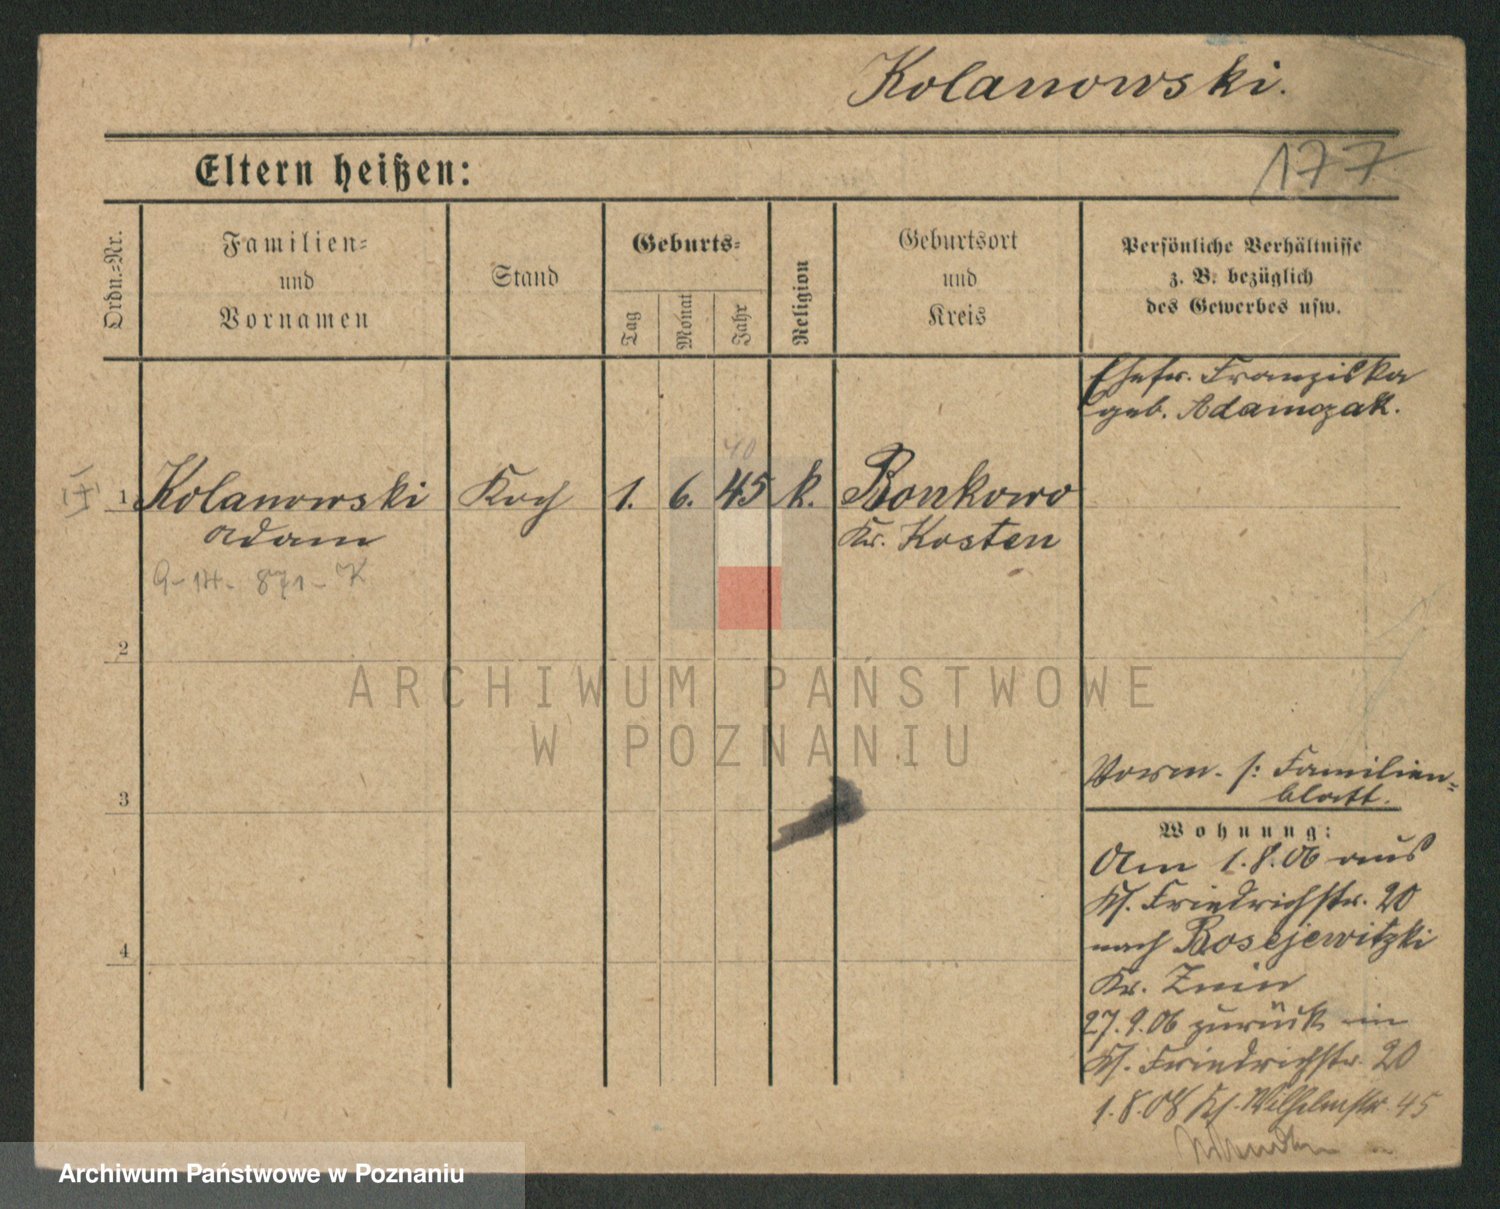 Kolanowski.
177
Eltern heißen:
Ordn.=Nr.
Familien=
und
Vornamen
Stand
Geburts=
Tag
Monat
Jahr
Religion
Geburtsort
und
Kreis
Persönliche Verhältnisse
z. B. bezüglich
des Gewerbes usw.
Ehefr. Franziska
geb. Adamczak.
40
1 Kolanowski Koch 1. 6. 45 k. Bonkowo
Adam Kr. Kosten
9-14- 871-K
2
ARCHIWUM PAŃSTWOWE
W POZNANIU
Vorm. s: Familien=
blatt.
3
Wohnung:
Am 1.8.06 aus
Kl. Friedrichstr. 20
nach Boscjewitzki
Kr. Znin
4
27.9.06 zurück in
Kl. Friedrichstr. 20
1.8.08 Kl. Wilhelmstr. 45
Archiwum Państwowe w Poznaniu